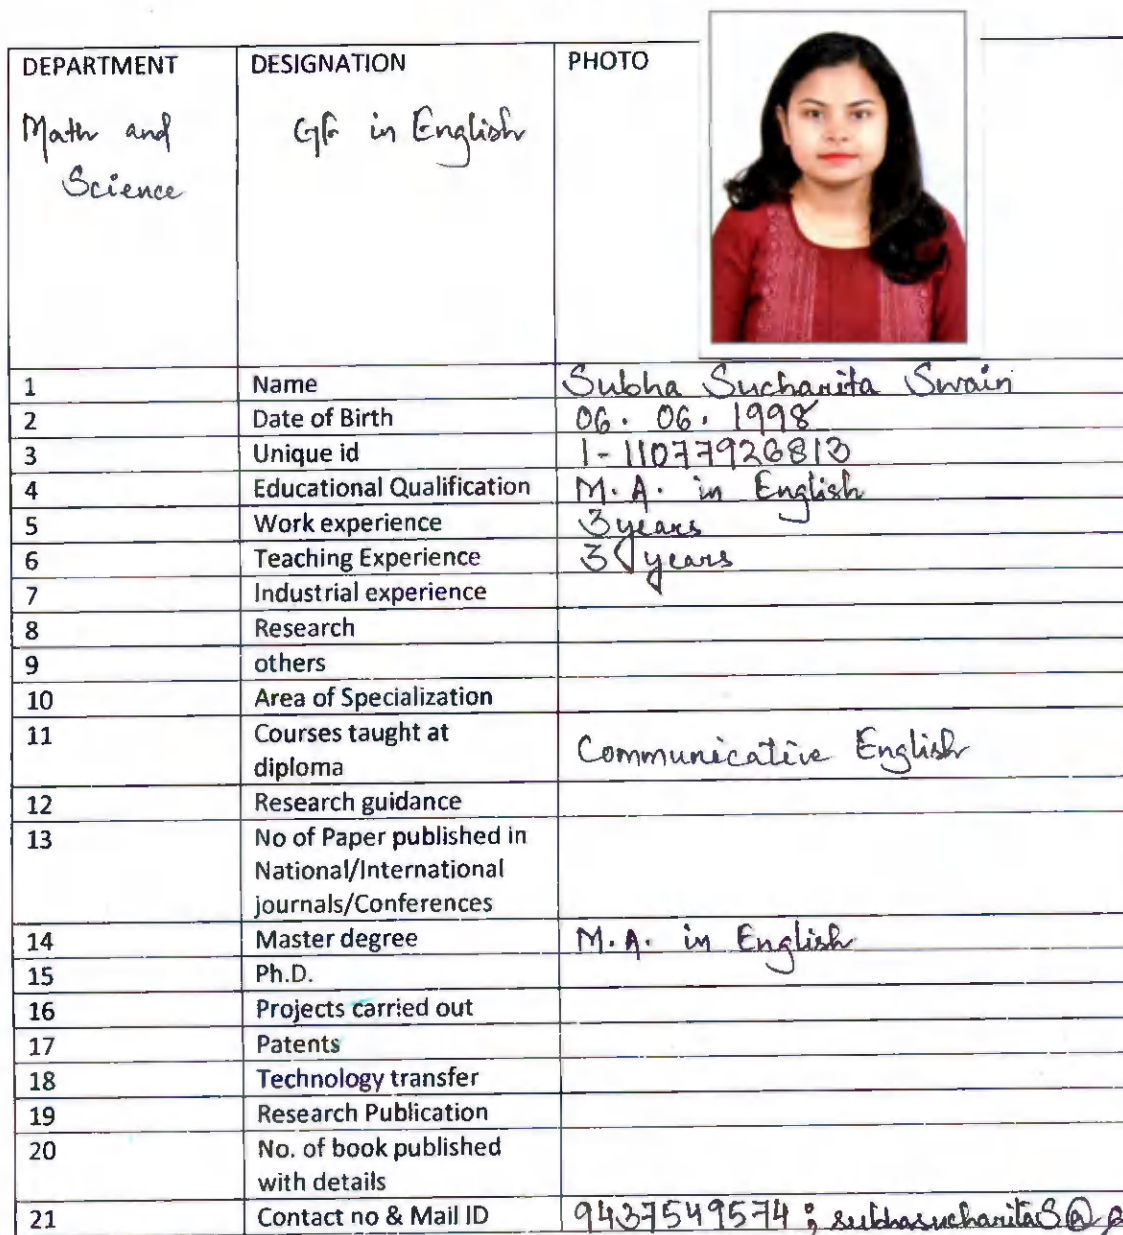 DEPARTMENT DESIGNATION PHOTO
Math and GF in English
Science
1 Name Subha Sucharita Swain
2 Date of Birth 06. 06. 1998
3 Unique id 1-11077926813
4 Educational Qualification M.A. in English
5 Work experience 3 years
6 Teaching Experience 3 years
7 Industrial experience
8 Research
9 others
10 Area of Specialization
11 Courses taught at
diploma Communicative English
12 Research guidance
13 No of Paper published in
National/International
journals/Conferences
14 Master degree M.A. in English
15 Ph.D.
16 Projects carried out
17 Patents
18 Technology transfer
19 Research Publication
20 No. of book published
with details
21 Contact no & Mail ID 9437549574 ; subhasucharitaS@